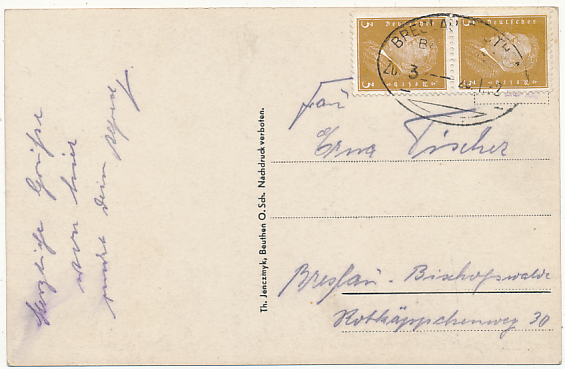 Herzliche Grüße
von hier
Th. Jenczmyk, Beuthen O. Sch. Nachdruck verboten.
3 Deutsches Reich 3
3 Deutsches Reich 3
BRESLAU
3
Frau
Erna Tischer
Breslau-Bischofswalde
Rotkäppchenweg 30